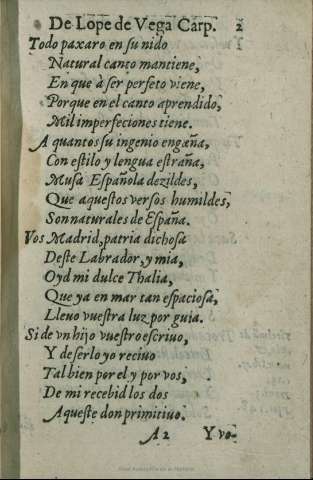 De Lope de Vega Carp. 2
Todo paxaro en su nido
Natural canto mantiene,
En que à ser perfeto viene,
Porque en el canto aprendido,
Mil imperfeciones tiene.
A quantos su ingenio engaña,
Con estilo y lengua estraña,
Musa Española dezildes,
Que aquestos versos humildes,
Son naturales de España.
Vos Madrid, patria dichosa
Deste Labrador, y mia,
Oyd mi dulce Thalia,
Que ya en mar tan espaciosa,
Lleuo vuestra luz por guia.
Si de vn hijo vuestro escriuo,
Y de serlo yo reciuo
Tal bien por el y por vos,
De mi recebid los dos
Aqueste don primitiuo.
A2 Y vo-